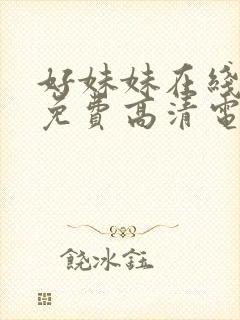 好妹妹在线
免费高清电
饶冰钰